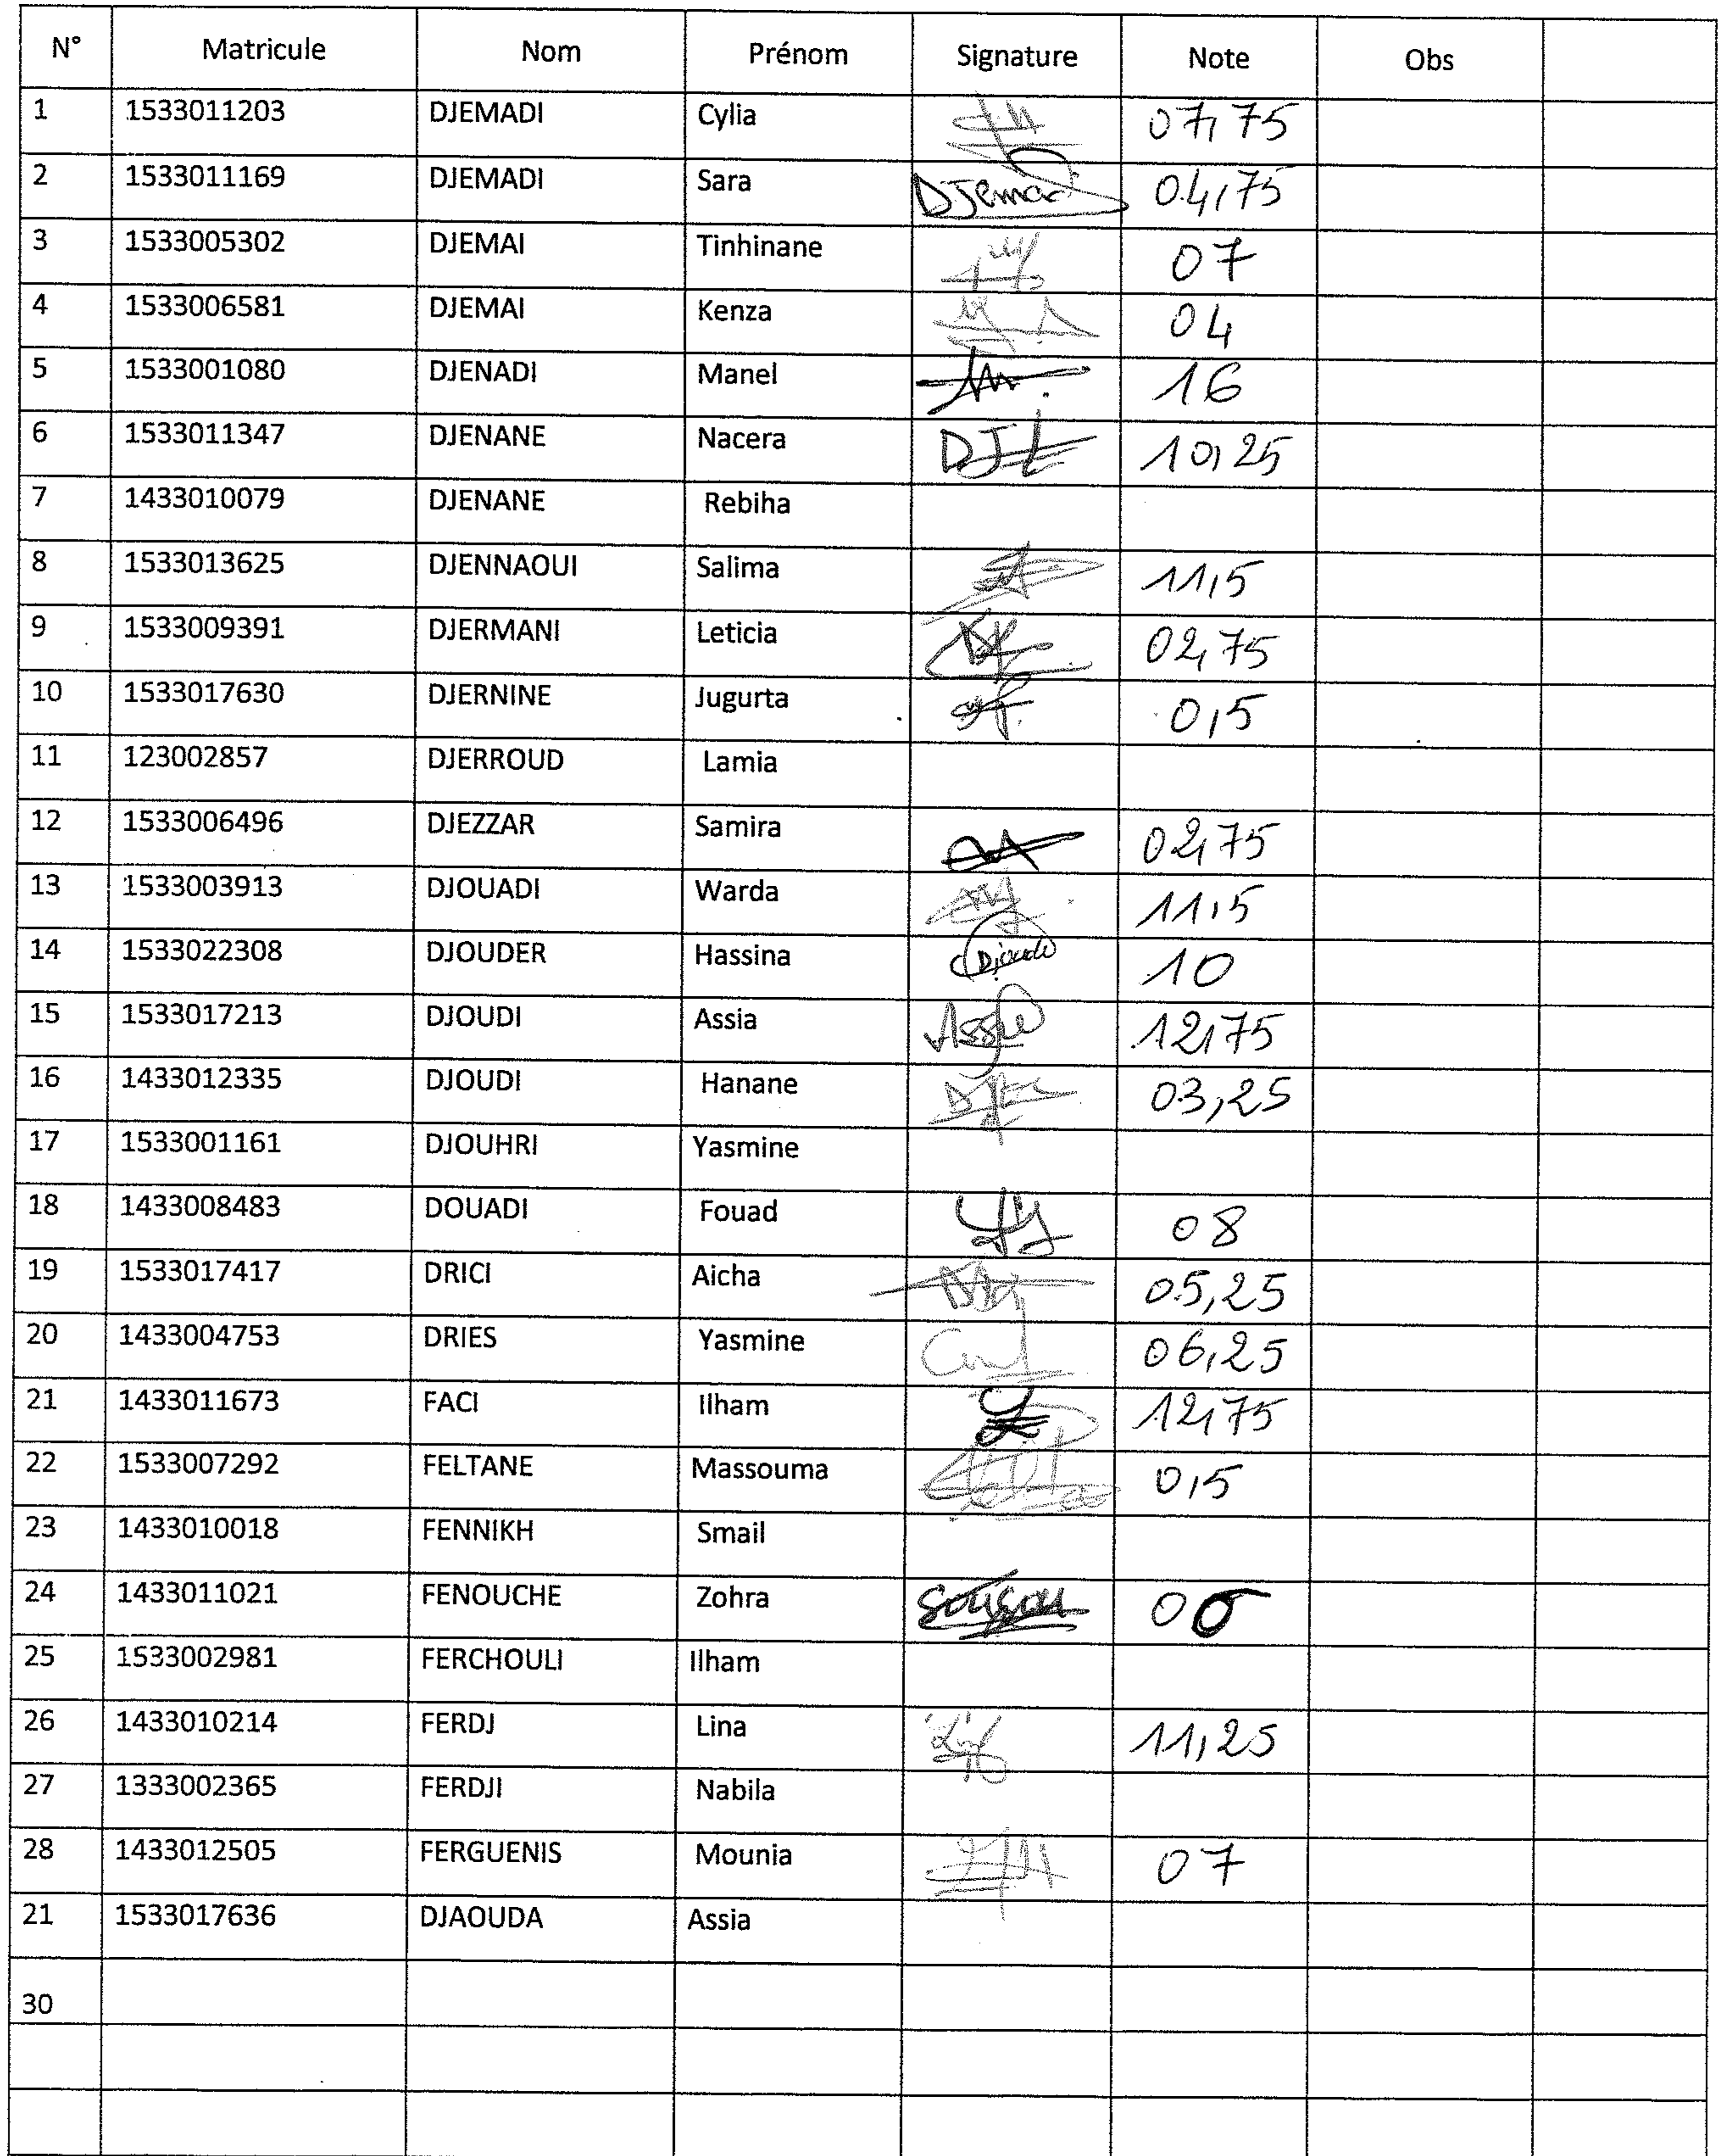 N° Matricule Nom Prénom Signature Note Obs
1 1533011203 DJEMADI Cylia 07,75
2 1533011169 DJEMADI Sara DJemadi 04,75
3 1533005302 DJEMAI Tinhinane 07
4 1533006581 DJEMAI Kenza 04
5 1533001080 DJENADI Manel 16
6 1533011347 DJENANE Nacera 10,25
7 1433010079 DJENANE Rebiha
8 1533013625 DJENNAOUI Salima 11,5
9 1533009391 DJERMANI Leticia 02,75
10 1533017630 DJERNINE Jugurta 0,5
11 123002857 DJERROUD Lamia
12 1533006496 DJEZZAR Samira 02,75
13 1533003913 DJOUADI Warda 11,5
14 1533022308 DJOUDER Hassina 10
15 1533017213 DJOUDI Assia 12,75
16 1433012335 DJOUDI Hanane 03,25
17 1533001161 DJOUHRI Yasmine
18 1433008483 DOUADI Fouad 08
19 1533017417 DRICI Aicha 05,25
20 1433004753 DRIES Yasmine 06,25
21 1433011673 FACI Ilham 12,75
22 1533007292 FELTANE Massouma 0,5
23 1433010018 FENNIKH Smail
24 1433011021 FENOUCHE Zohra 00
25 1533002981 FERCHOULI Ilham
26 1433010214 FERDJ Lina 11,25
27 1333002365 FERDJI Nabila
28 1433012505 FERGUENIS Mounia 07
21 1533017636 DJAOUDA Assia
30